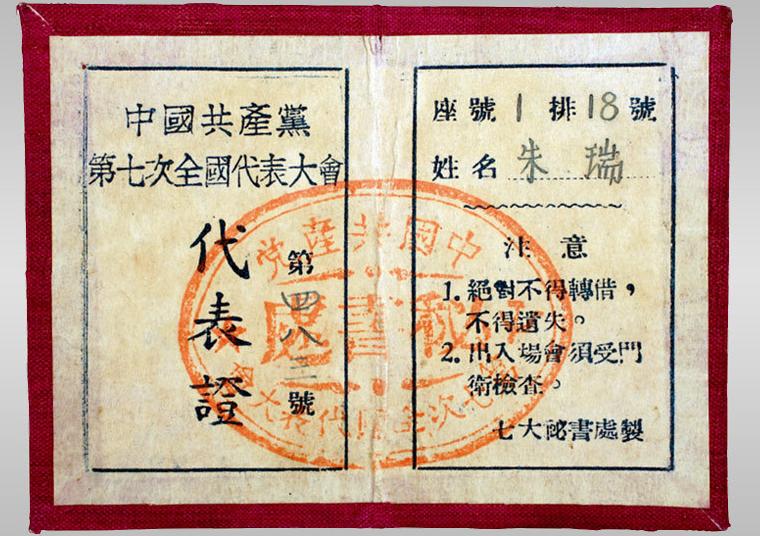 中國共產黨
第七次全國代表大會
代表證
第四八三號
座號 1 排 18 號
姓名 朱瑞
注意
1. 絕對不得轉借，
不得遺失。
2. 出入場會須受門
衛檢查。
七大祕書處製
中國共產党
祕書處
第七次全國代表大會